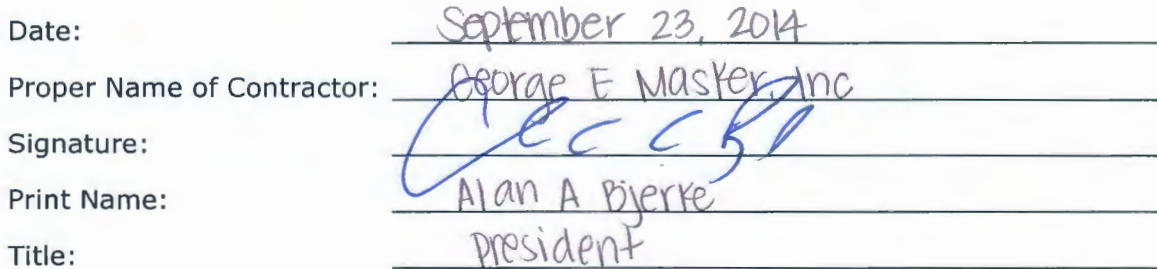 Date: September 23, 2014
Proper Name of Contractor: George E Masker, Inc
Signature:
Print Name: Alan A Bjerke
Title: President